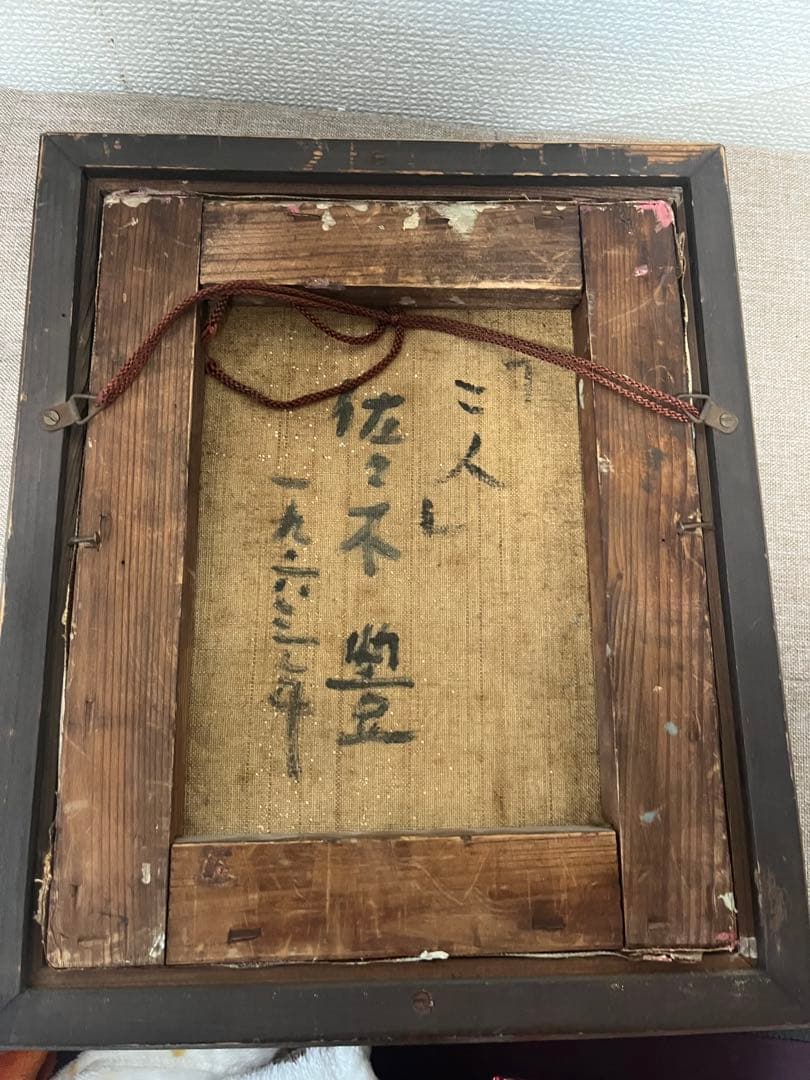 「二人」
佐々木 豊
一九六三年